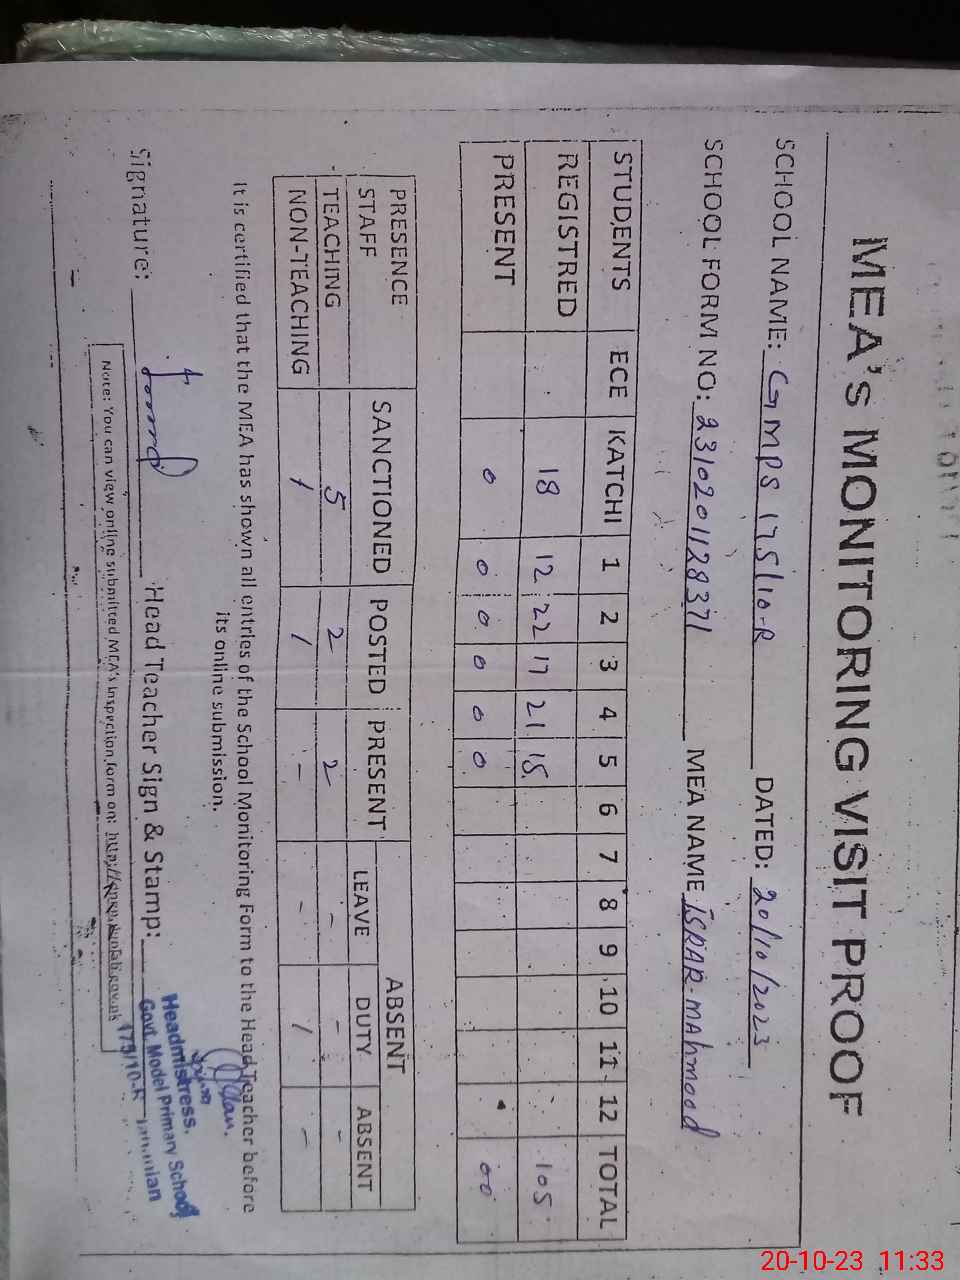 MEA's MONITORING VISIT PROOF
SCHOOL NAME: GMPS 175/10-R DATED: 20/10/2023
SCHOOL FORM NO: 2310201128371 MEA NAME ISRAR-MAHMOOD
STUDENTS ECE KATCHI 1 2 3 4 5 6 7 8 9 10 11 12 TOTAL
REGISTRED 18 12 22 17 21 15 105
PRESENT 0 0 0 0 0 0 00
PRESENCE STAFF SANCTIONED POSTED PRESENT ABSENT
LEAVE DUTY ABSENT
TEACHING 5 2 2 - - -
NON-TEACHING 1 1 - - 1 -
It is certified that the MEA has shown all entries of the School Monitoring Form to the Head Teacher before
its online submission.
Signature: Head Teacher Sign & Stamp:
Headmistress.
Govt. Model Primary School
175/10-R
Note: You can view online submitted MEA's inspection form on:
20-10-23 11:33